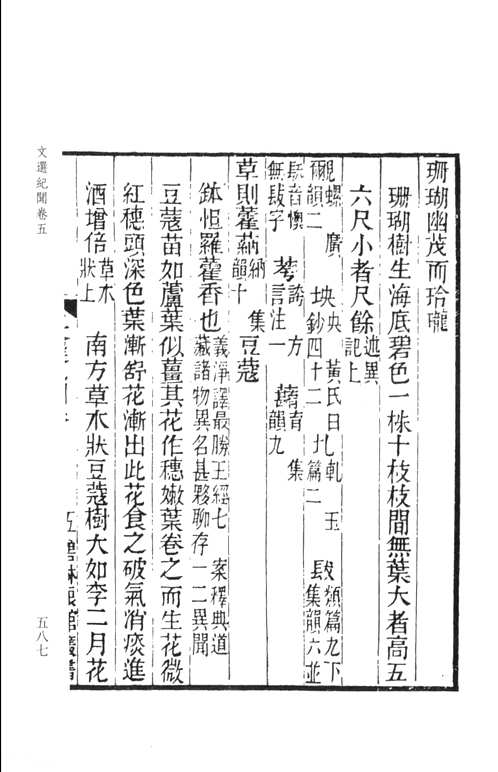 珊瑚幽茂而玲瓏
珊瑚樹生海底碧色一株十枝枝間無葉大者高五
六尺小者尺餘述異記上
覶螺 廣 坱央 黃氏日乢軋 玉 镺類篇九下
爾韻二 坱鈔四十二 乢篇二 镺集韻六並
镺音懊 荂誇 方 蕕育 集
無镺字 荂言注一 葚韻九
草則藿蒳納 集韻十 豆蔻
鉢怛羅藿香也義淨譯最勝王經七 案釋典道
藏諸物異名甚夥聊存一二異聞
豆蔻苗如蘆葉似薑其花作穗嫩葉卷之而生花微
紅穗頭深色葉漸舒花漸出此花食之破氣消痰進
酒增倍草木狀上 南方草木狀豆蔻樹大如李二月花
文選紀聞卷五
五八七